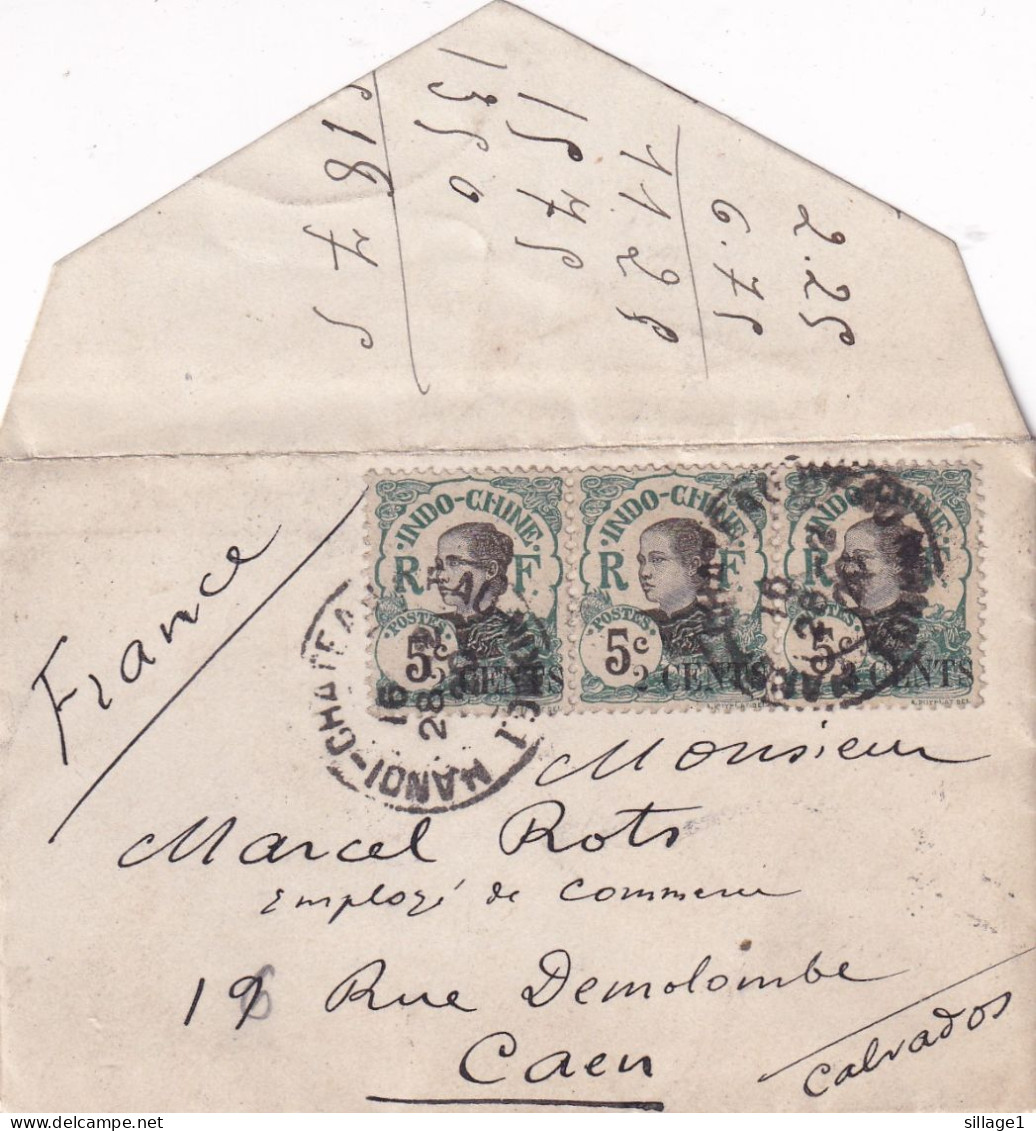 2.25
6.75
11 25
15 75
13 50
INDO-CHINE
R F
POSTES
5c
2 CENTS
INDO-CHINE
R F
POSTES
5c
2 CENTS
INDO-CHINE
R F
POSTES
5c
2 CENTS
16
28
HANOI-CHATEAU
France
Monsieur
Marcel Rots
Employé de Commerce
19 Rue Demolombe
Caen
Calvados
sillage1